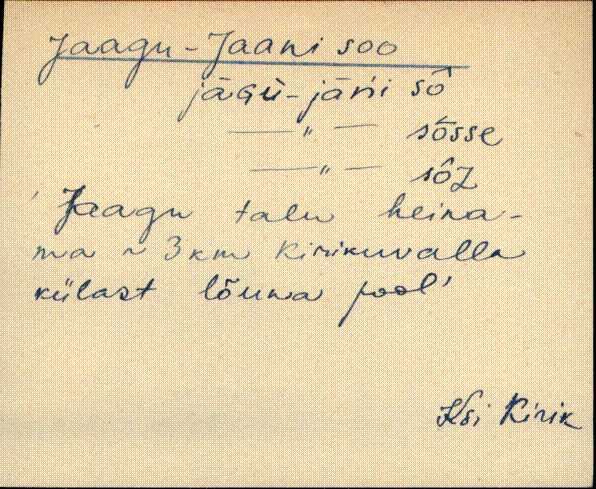 Jaagu-Jaani soo
jāgu-jāńi sô
—„— sôsse
—„— sôz
Jaagu talu heina-
ma ~ 3 km Kirikuvalla
külast lõuna pool'
Khi Kirik